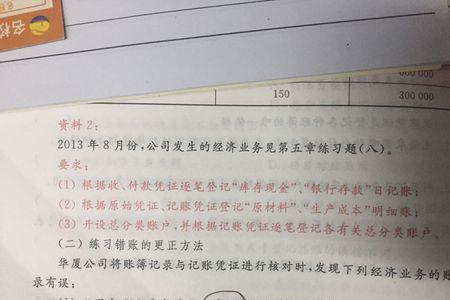 名校
150
300 000
资料2：
2013年8月份,公司发生的经济业务见第五章练习题(八)。
要求：
(1) 根据收、付款凭证逐笔登记“库存现金”、“银行存款”日记账；
(2) 根据原始凭证、记账凭证登记“原材料”、“生产成本”明细账；
(3) 开设总分类账户,并根据记账凭证逐笔登记各有关总分类账户。
(二) 练习错账的更正方法
华厦公司将账簿记录与记账凭证进行核对时,发现下列经济业务的账
录有误：